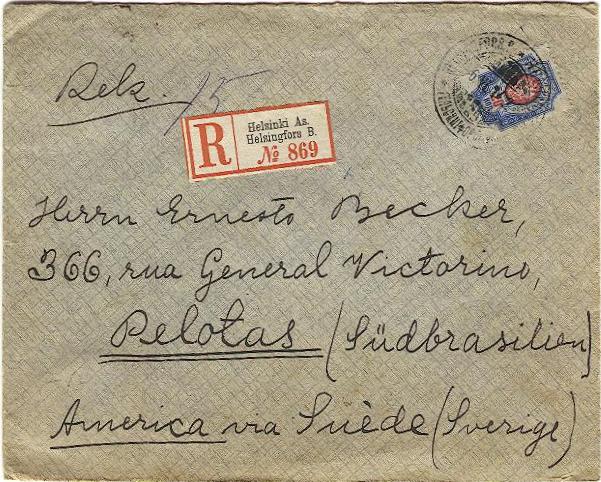 Rek.
15
R
Helsinki As.
Helsingfors B.
№ 869
Herrn Ernesto Becker,
366, rua General Victorino,
Pelotas (Südbrasilien)
America via Suède (Sverige)